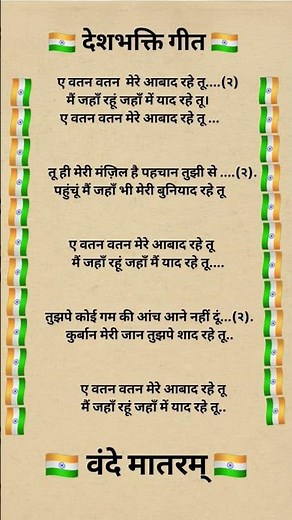 देशभक्ति गीत
ए वतन वतन मेरे आबाद रहे तू....(२)
मैं जहाँ रहूं जहाँ में याद रहे तू।
ए वतन वतन मेरे आबाद रहे तू ...
तू ही मेरी मंज़िल है पहचान तुझी से ....(२).
पहुंचूं मैं जहाँ भी मेरी बुनियाद रहे तू
ए वतन वतन मेरे आबाद रहे तू
मैं जहाँ रहूं जहाँ मैं याद रहे तू....
तुझपे कोई गम की आंच आने नहीं दूं...(२).
कुर्बान मेरी जान तुझपे शाद रहे तू..
ए वतन वतन मेरे आबाद रहे तू
मैं जहाँ रहूं जहाँ में याद रहे तू..
वंदे मातरम्